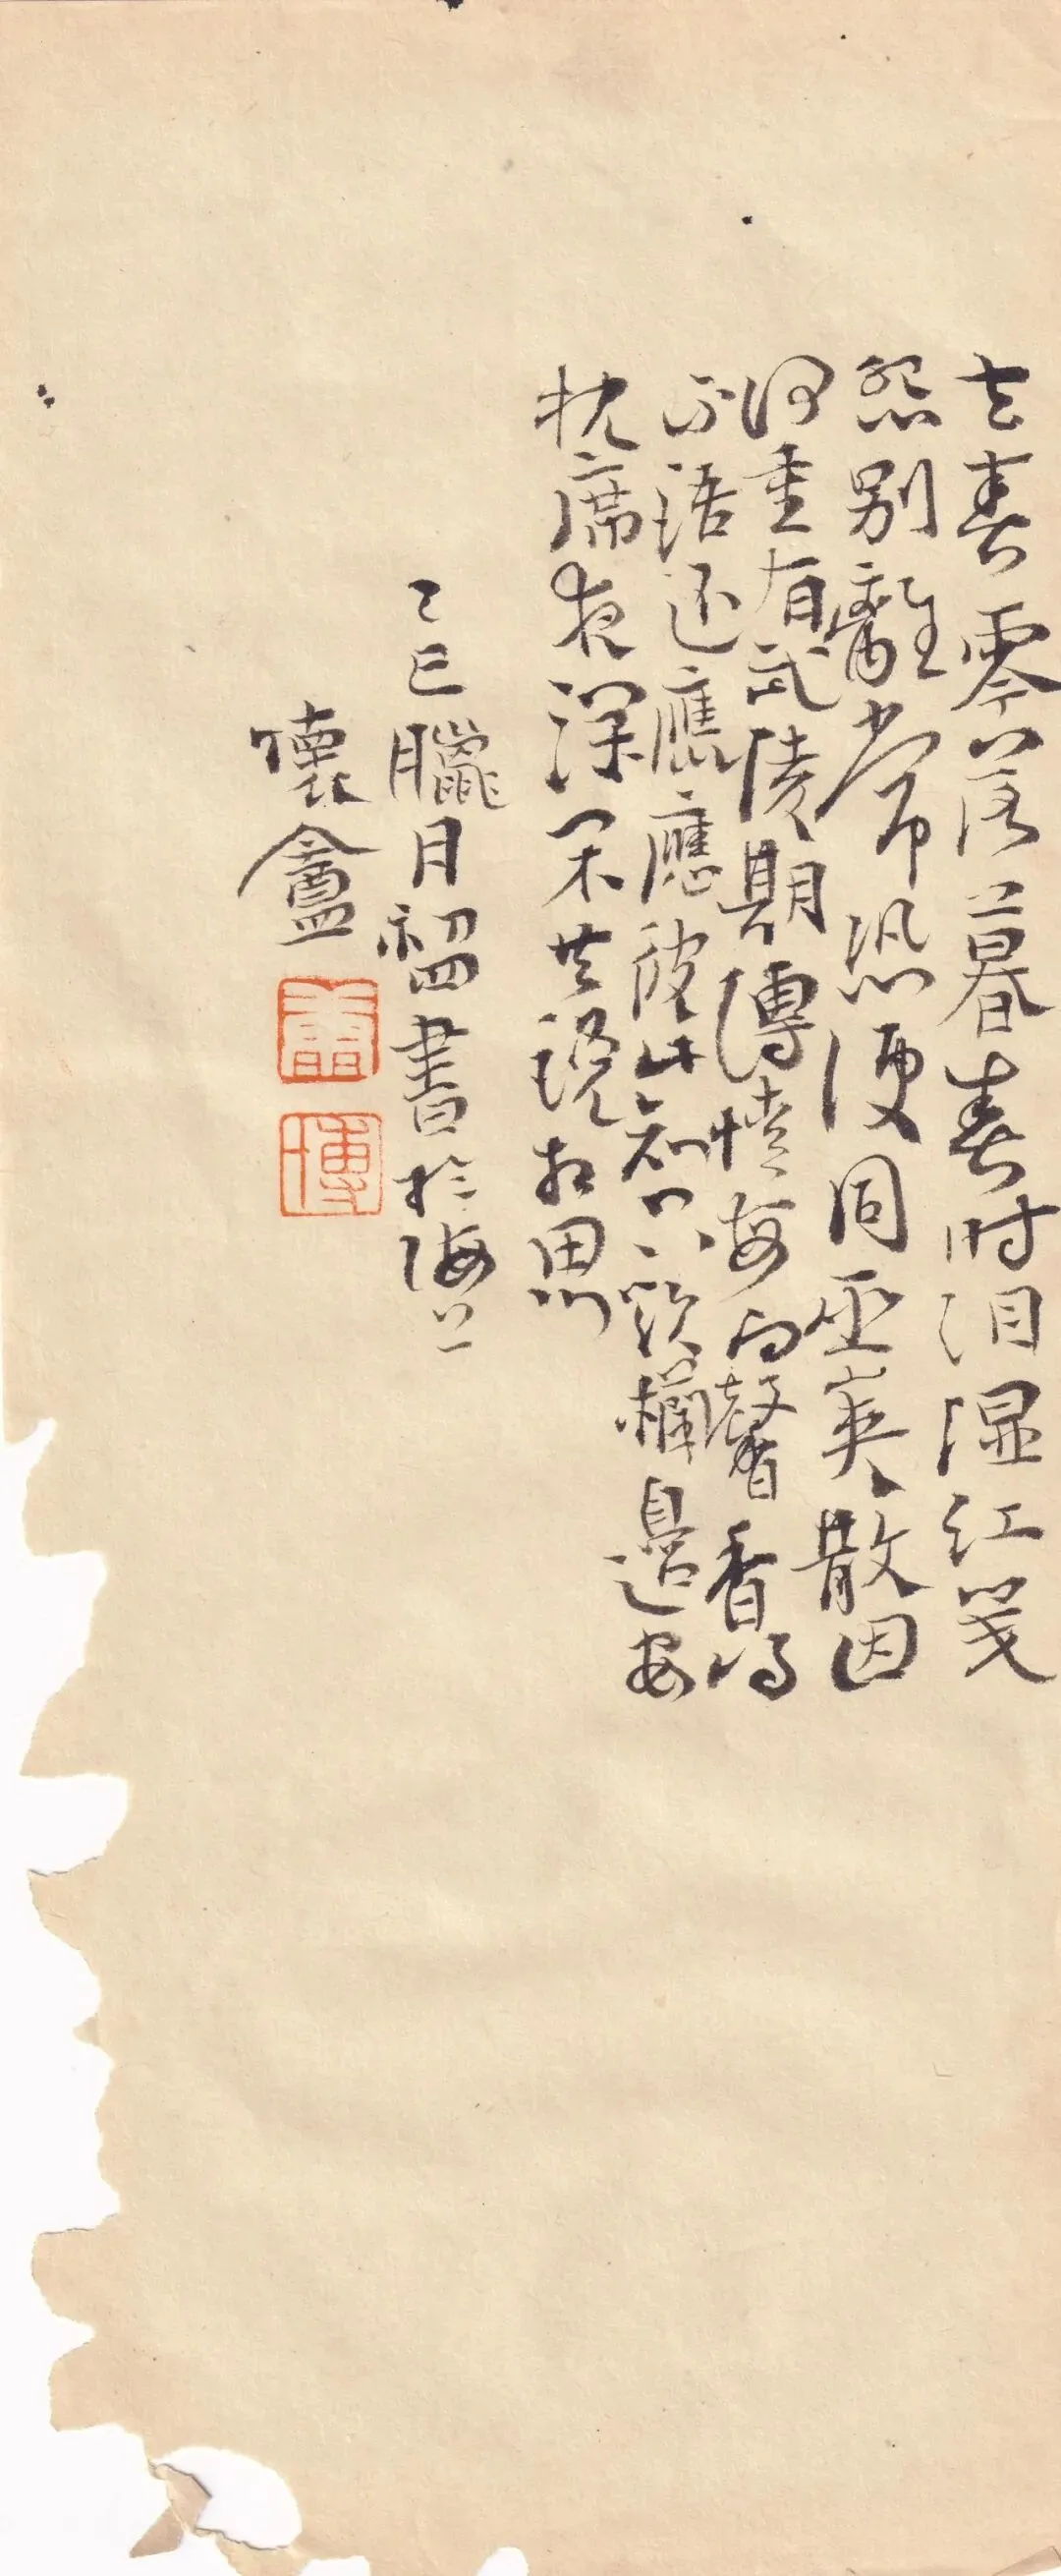 去春零落暮春时泪湿红笺
怨别離常恐便同巫峡散因
何重有武陵期傳情每向馨香得
不语还應應彼此知只欲欄邊安
枕席夜深闲共说相思
乙巳臘月初四書於海上
懷盦
博